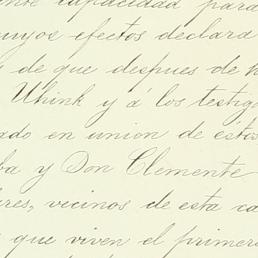 capacidad para
cuyos efectos declara
de que despues de
Uhink y á los testigo
ado en union de estos
ba y Don Clemente
res, vecinos de esta ca
que viven el primero